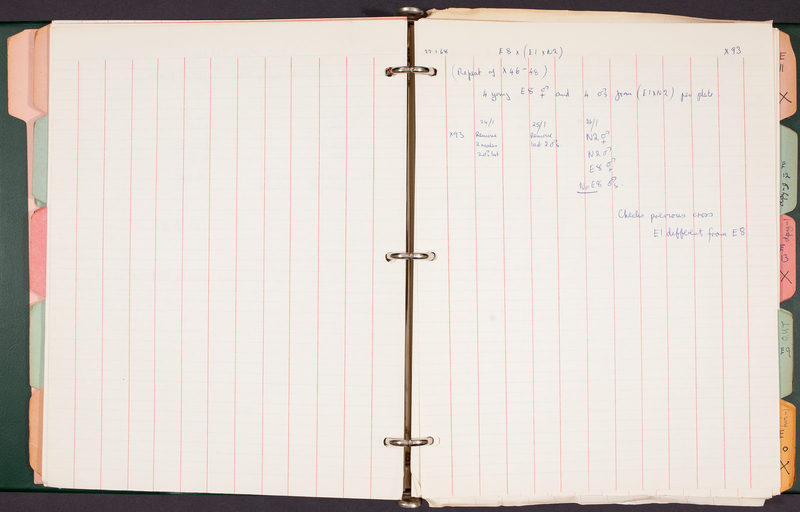 22.1.68 E8 x (E1 x N2) X93
(Repeat of X46-48)
4 young E8 ⚥ and 4 ♂s from (E1xN2) per plate.
24/1 25/1 26/1
X93 Remove Remove N2 ⚥
2 males last 2♂s N2 ♂
2♂s left E8 ⚥
No E8 ♂s.
Checks previous cross
E1 different from E8
E
11
X
dpy-1
E
13
X
OUT
E9
E
X